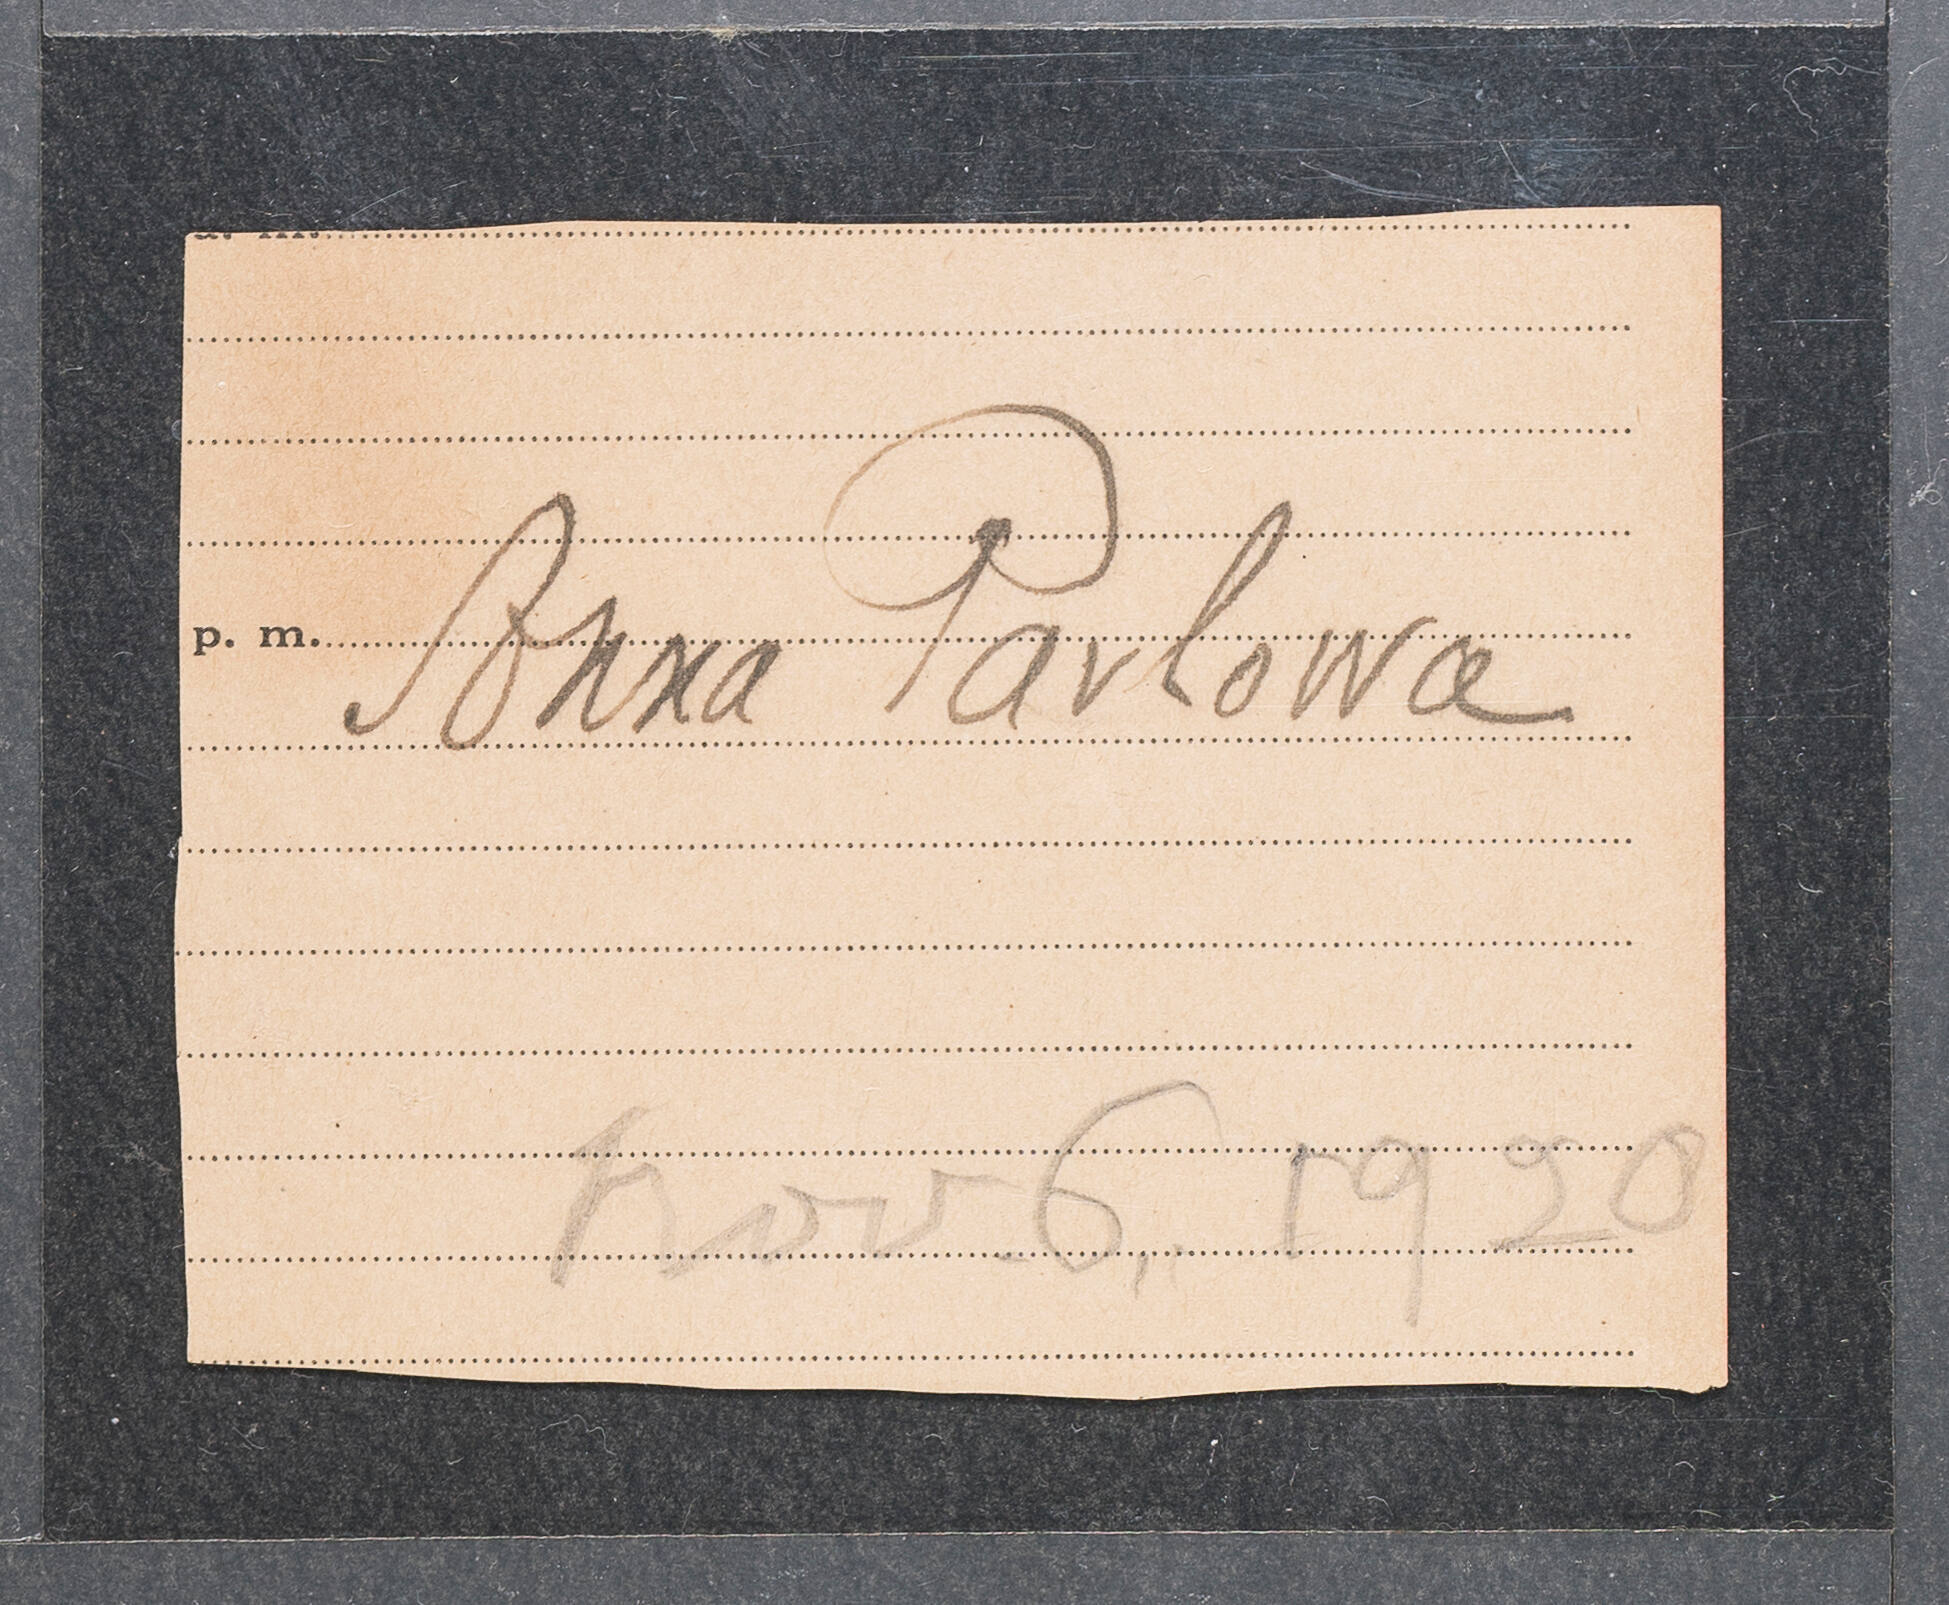 p. m. Anna Pavlowa
Nov 6, 1920